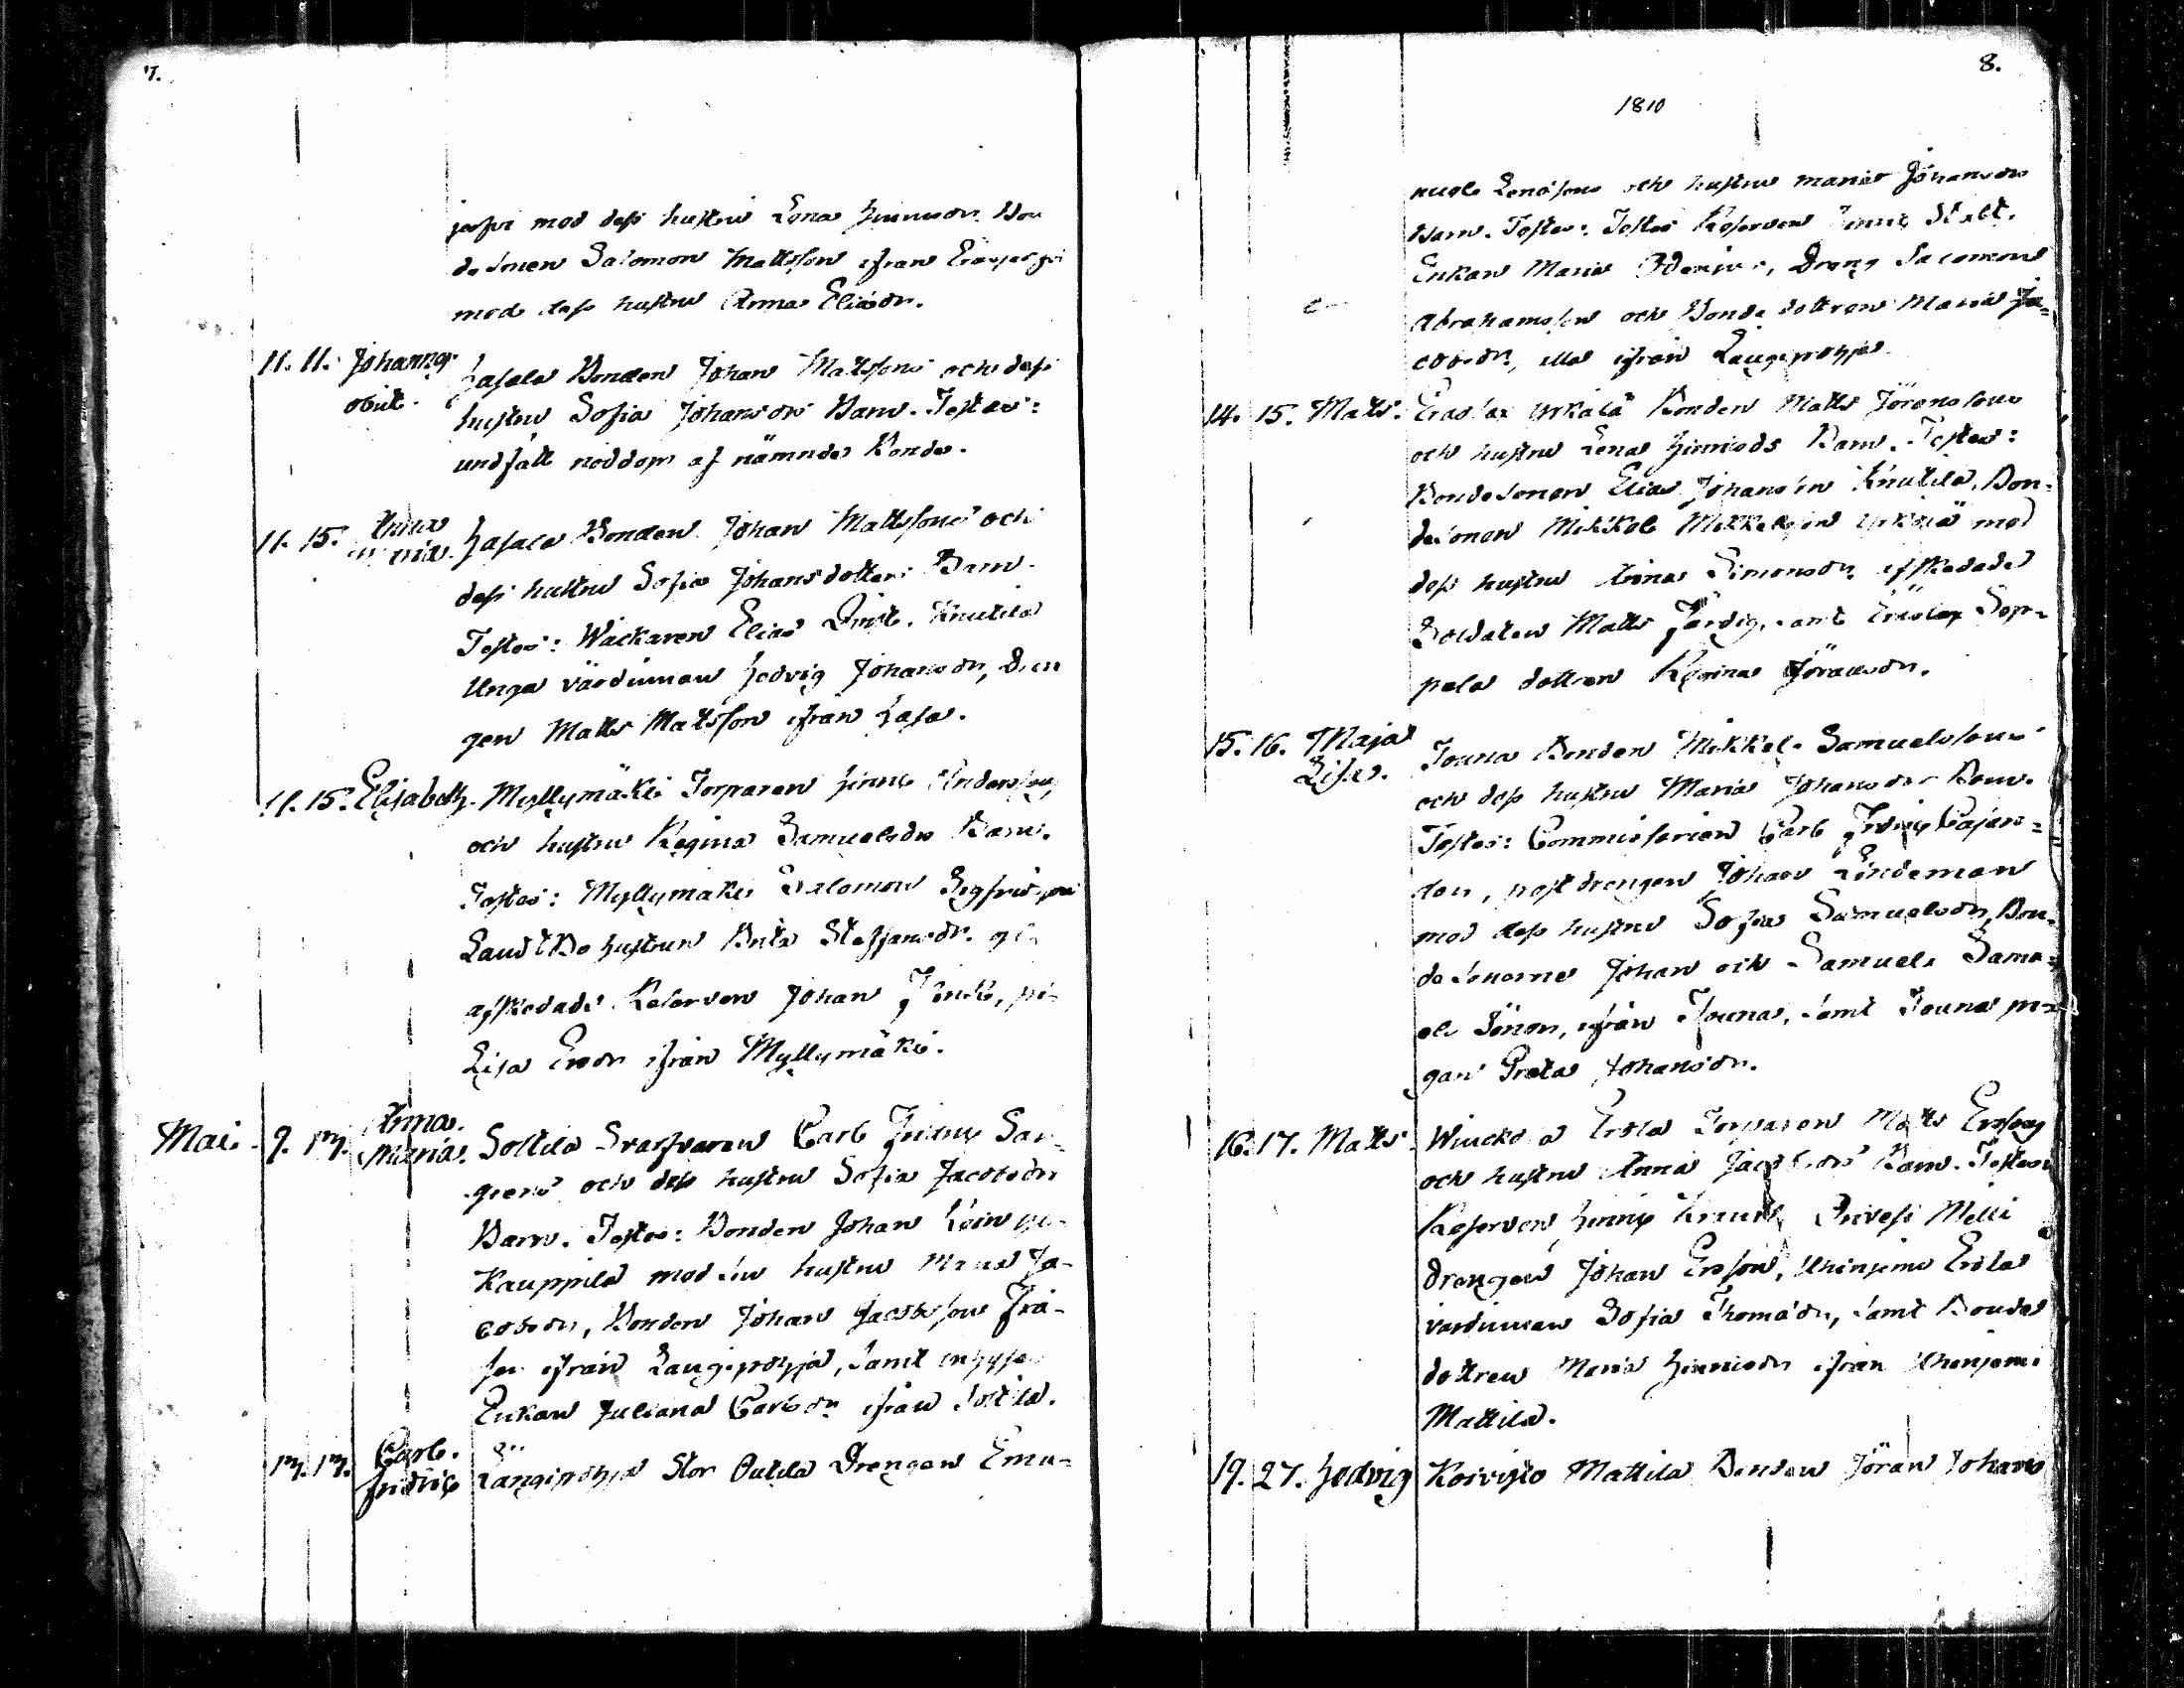 7.
med dess hustru Lena Hinricsdr. Bon
de Sonen Salomon Mattsson ifran
med dess hustru Anna Eliaedr.
11. 11. Johannes Hasala Bonden Johan Mattssons och dess
obiit. hustru Sofia Johansdrs Barn. Testes:
undfatt nöddop af nämnde Bonde.
11. 15. Anna Maria. Hasala Bonden Johan Mattssons och
dess hustru Sofia Johansdotters Barn.
Testes: Wäckaren Elias Knutila
Unga värdinnan Hedvig Johansdr, Dren
gen Matts Mattsson ifran Hasa.
11. 15. Elisabeth. Myllymäki Torparen Hinric Anderssons
och hustru Regina Samuelsdrs Barn.
Testes: Myllymäki Salomon
hustrun Brita Steffansdr.
afskedade Reserven Johan
Lisa Ersdr ifran Myllymäki.
Mai. 9. 17. Anna Maria. Sottila Svarfvaren Carl Fridric
grens och dess hustru Sofia Jacobsdrs
Barn. Testes: Bonden Johan
Kauppila med sin hustru Maria Ja-
cobsdr, Bonden Johan Jacobsson
ifran Laugipohja, samt
Enkan Juliana Carlsdr ifran Sottila.
17. 17. Carl Fridric Längipohja Stor Outila Drengen Ema-
8.
1810
nuels och hustru Maria Johansdrs
Barn. Testes: Reserven Hinric
Enkan Maria Dreng Salomon
Abrahamsson och Bonde dottren Maria Ja-
cobsdr, alla ifran Laugipohja.
14. 15. Matts. Eräslax Yrkälä Bonden Matts Jöranssons
och hustru Lena Hinricsds Barn. Testes:
Bondesonen Elias Johansson Knutila, Bon-
desonen Mikkel Mikkelsson Yrkälä med
dess hustru Anna Simonsdr, afskedade
Soldaten Matts samt Eräslax Sep-
pälä dottren Regina Jöransdr.
15. 16. Maja Lisa. Jouna Bonden Mikkel Samuelssons
och dess hustru Maria Johansdrs Barn.
Testes: Commissarien Carl Fridric Cajan-
der, post drengen Johan Lindeman
med dess hustru Sofia Samuelsdr, Bon-
de Sonerne Johan och Samuel Samu-
els Söner, ifran Jouna, samt Jouna pi-
gan Greta Johansdr.
16. 17. Matts Erola Torparen Matts Erssons
och hustru Anna Jacobsdrs Barn. Testes:
Reserven Hinric
Drengen Johan Ersson, Uhinjemi Erola
värdinnan Sofia Thomädr, samt Bonde
dottren Maria Hinricsdr ifran Uhinjemi
Mattila.
19. 27. Hedvig Koivisto Mattila Bonden Jöran Johans